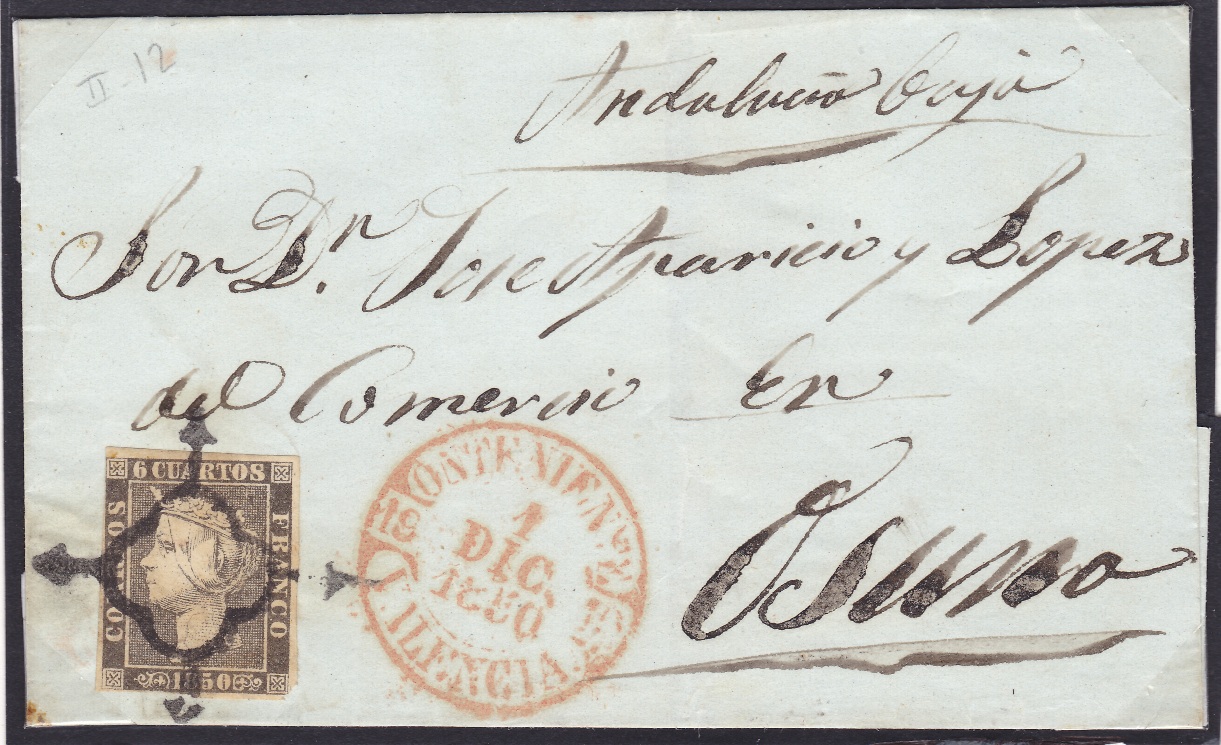 II-12
Andalucia baja
Sor Dn. Jose Aparicio y Lopez
del Comercio En
Osuna
6 CUARTOS
CORREOS
FRANCO
1850
ONTENIENTE
19
1
DIC.
1850
VALENCIA.